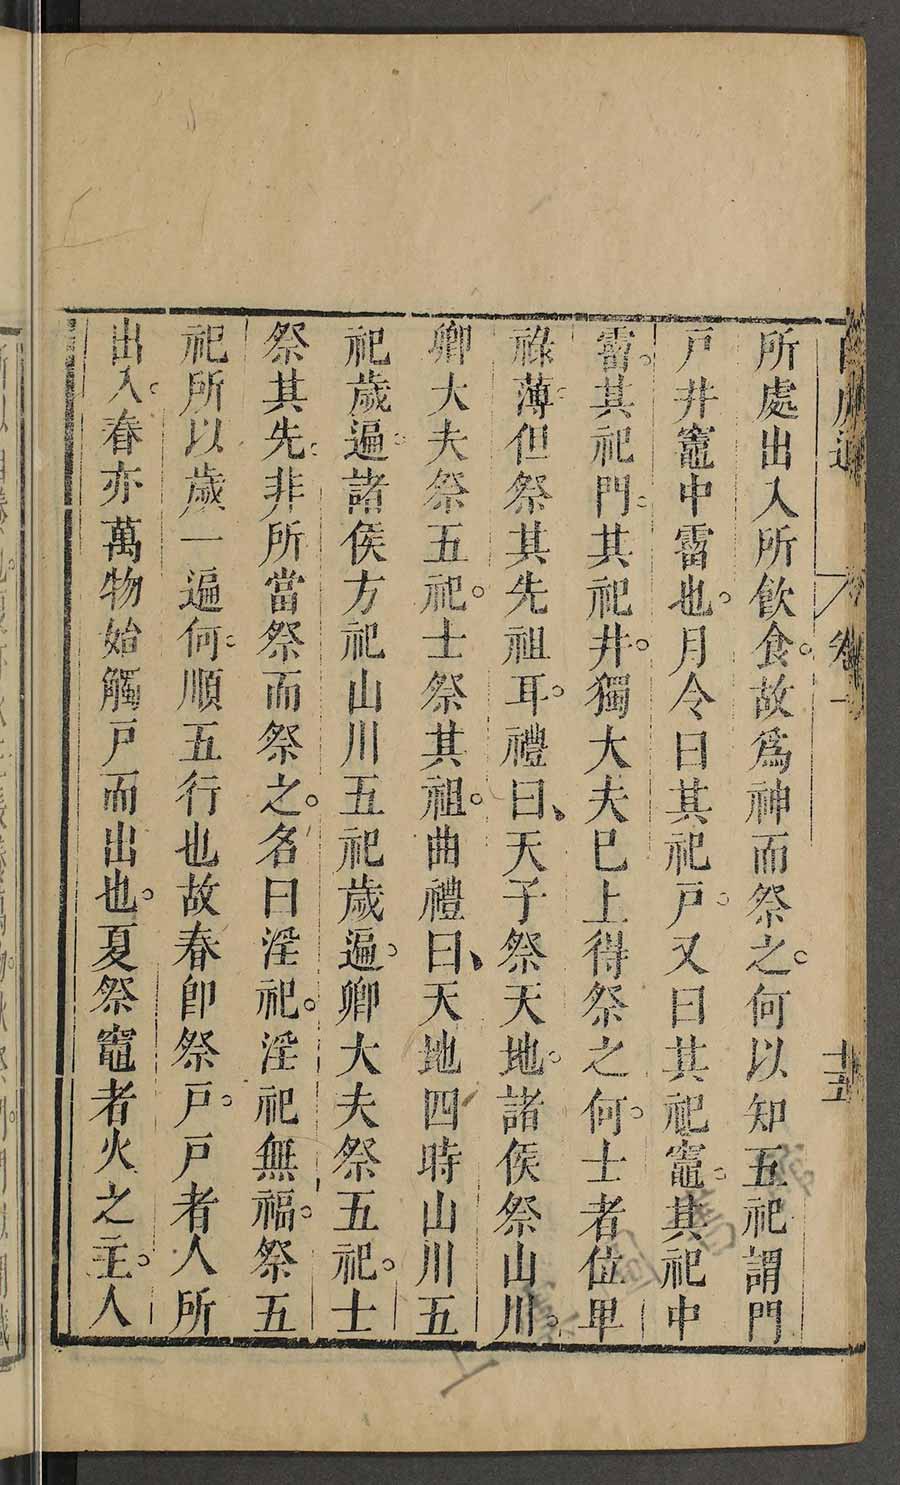 白虎通 卷一 十五
所處出入所飲食。故爲神而祭之。何以知五祀謂門
戸井竈中霤也。月令曰其祀戸。又曰其祀竈。其祀中
霤。其祀門。其祀井。獨大夫巳上得祭之何。士者位卑
祿薄。但祭其先祖耳。禮曰、天子祭天地。諸侯祭山川。
卿大夫祭五祀。士祭其祖。曲禮曰、天地四時山川五
祀歲遍。諸侯方祀山川五祀歲遍。卿大夫祭五祀。士
祭其先。非所當祭而祭之。名曰淫祀。淫祀無福。祭五
祀所以歲一遍何。順五行也故春卽祭戸。戸者人所
出入。春亦萬物始觸戸而出也。夏祭竈者火之主。人